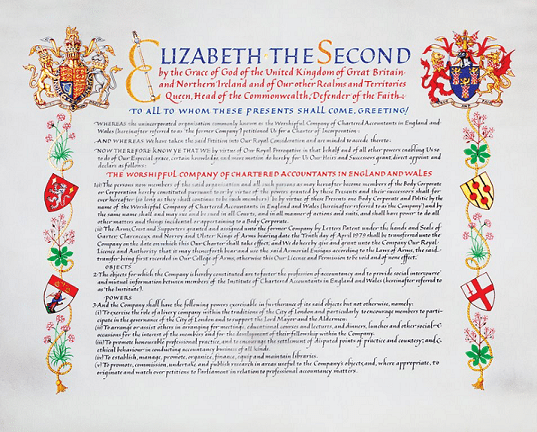 ELIZABETH THE SECOND
by the Grace of God of the United Kingdom of Great Britain
and Northern Ireland and of Our other Realms and Territories
Queen, Head of the Commonwealth, Defender of the Faith:
TO ALL TO WHOM THESE PRESENTS SHALL COME, GREETING!
WHEREAS the unincorporated organisation commonly known as the Worshipful Company of Chartered Accountants in England and
Wales (hereinafter referred to as 'the former Company') petitioned Us for a Charter of Incorporation:
AND WHEREAS We have taken the said Petition into Our Royal Consideration and are minded to accede thereto:
NOW THEREFORE KNOW YE THAT WE by virtue of Our Royal Prerogative in that behalf and of all other powers enabling Us so
to do of Our Especial grace, certain knowledge and mere motion do hereby for Us Our Heirs and Successors grant, direct appoint and
declare as follows:
THE WORSHIPFUL COMPANY OF CHARTERED ACCOUNTANTS IN ENGLAND AND WALES
1(i) The persons now members of the said organisation and all such persons as may hereafter become members of the Body Corporate
or Corporation hereby constituted pursuant to or by virtue of the powers granted by these Presents and their successors shall for
ever hereafter (so long as they shall continue to be such members) be by virtue of these Presents one Body Corporate and Politic by the
name of the Worshipful Company of Chartered Accountants in England and Wales (hereinafter referred to as 'the Company') and by
the same name shall and may sue and be sued in all Courts, and in all manner of actions and suits, and shall have power to do all
other matters and things incidental or appertaining to a Body Corporate.
(ii) The Arms, Crest and Supporters granted and assigned unto the former Company by Letters Patent under the hands and Seals of
Garter, Clarenceux, and Norroy and Ulster Kings of Arms bearing date the day of April 1979 shall be transferred unto the
Company on the date on which this Our Charter shall take effect; and We do hereby give and grant unto the Company Our Royal
Licence and Authority that it may thenceforth bear and use the said Armorial Ensigns according to the Laws of Arms, the said
transfer being first recorded in Our College of Arms, otherwise this Our Licence and Permission to be void and of none effect.
OBJECTS
2 The objects for which the Company is hereby constituted are to foster the profession of accountancy and to provide social intercourse
and mutual information between members of the Institute of Chartered Accountants in England and Wales (hereinafter referred to
as 'the Institute').
POWERS
3 And the Company shall have the following powers exercisable in furtherance of its said objects but not otherwise, namely:
(i) To exercise the role of a livery company within the traditions of the City of London and particularly to encourage members to part-
icipate in the governance of the City of London and to support the Lord Mayor and the Aldermen.
(ii) To arrange or assist others in arranging for meetings, educational courses and lectures, and dinners, lunches and other social
occasions for the interest of the members and for the development of their fellowship within the Company.
(iii) To promote honourable professional practice, and to encourage the settlement of disputed points of practice and courtesy; and
ethical behaviour in conducting accountancy business of all kinds.
(iv) To establish, manage, promote, organise, finance, equip and maintain libraries.
(v) To promote, commission, undertake and publish research in areas useful to the Company's objects; and, where appropriate, to
originate and watch over petitions to Parliament in relation to professional accountancy matters.